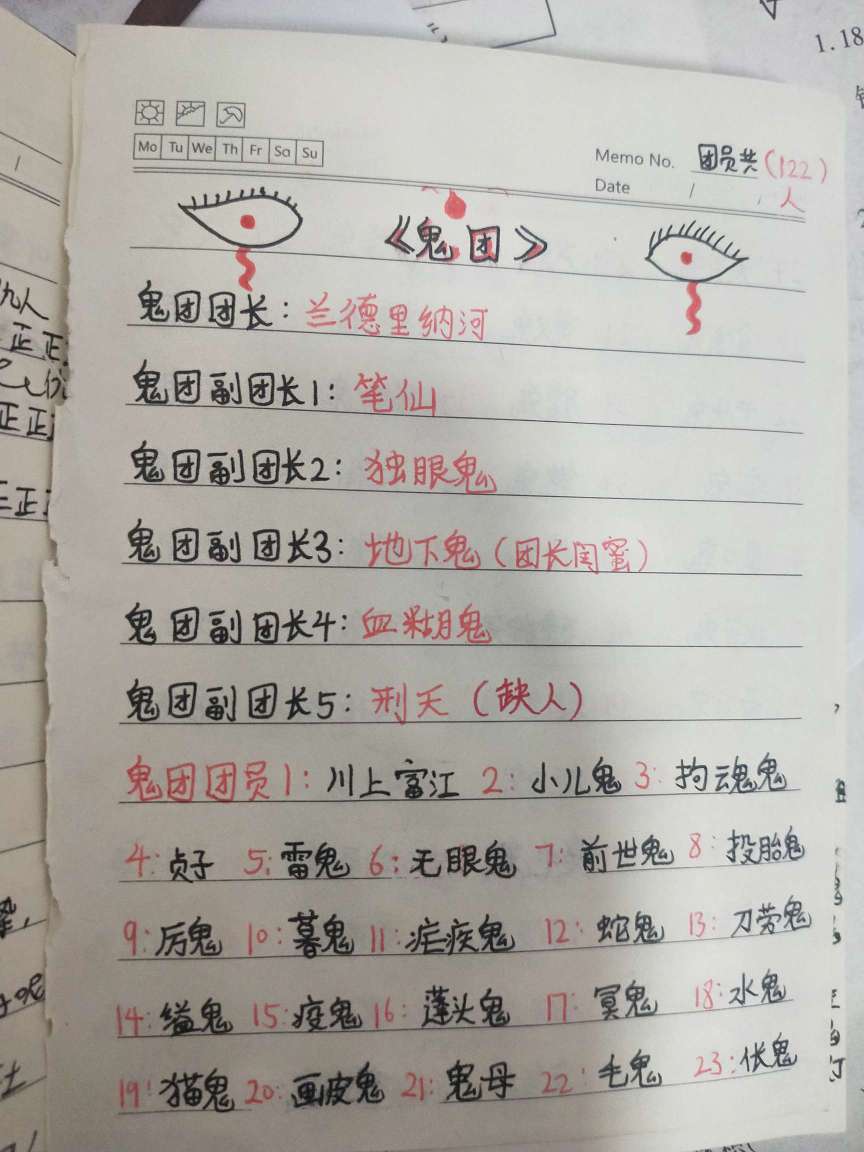 1.18
Mo Tu We Th Fr Sa Su
Memo No. 团员共(122)人
Date / /
《鬼团》
鬼团团长：兰德里纳河
鬼团副团长1：笔仙
鬼团副团长2：独眼鬼
鬼团副团长3：地下鬼（团长闺蜜）
鬼团副团长4：血糊鬼
鬼团副团长5：刑天（缺人）
鬼团团员1：川上富江 2：小儿鬼 3：拘魂鬼
4：贞子 5：雷鬼 6：无眼鬼 7：前世鬼 8：投胎鬼
9：厉鬼 10：暮鬼 11：疟疾鬼 12：蛇鬼 13：刀劳鬼
14：缢鬼 15：疫鬼 16：蓬头鬼 17：冥鬼 18：水鬼
19：猫鬼 20：画皮鬼 21：鬼母 22：毛鬼 23：伥鬼